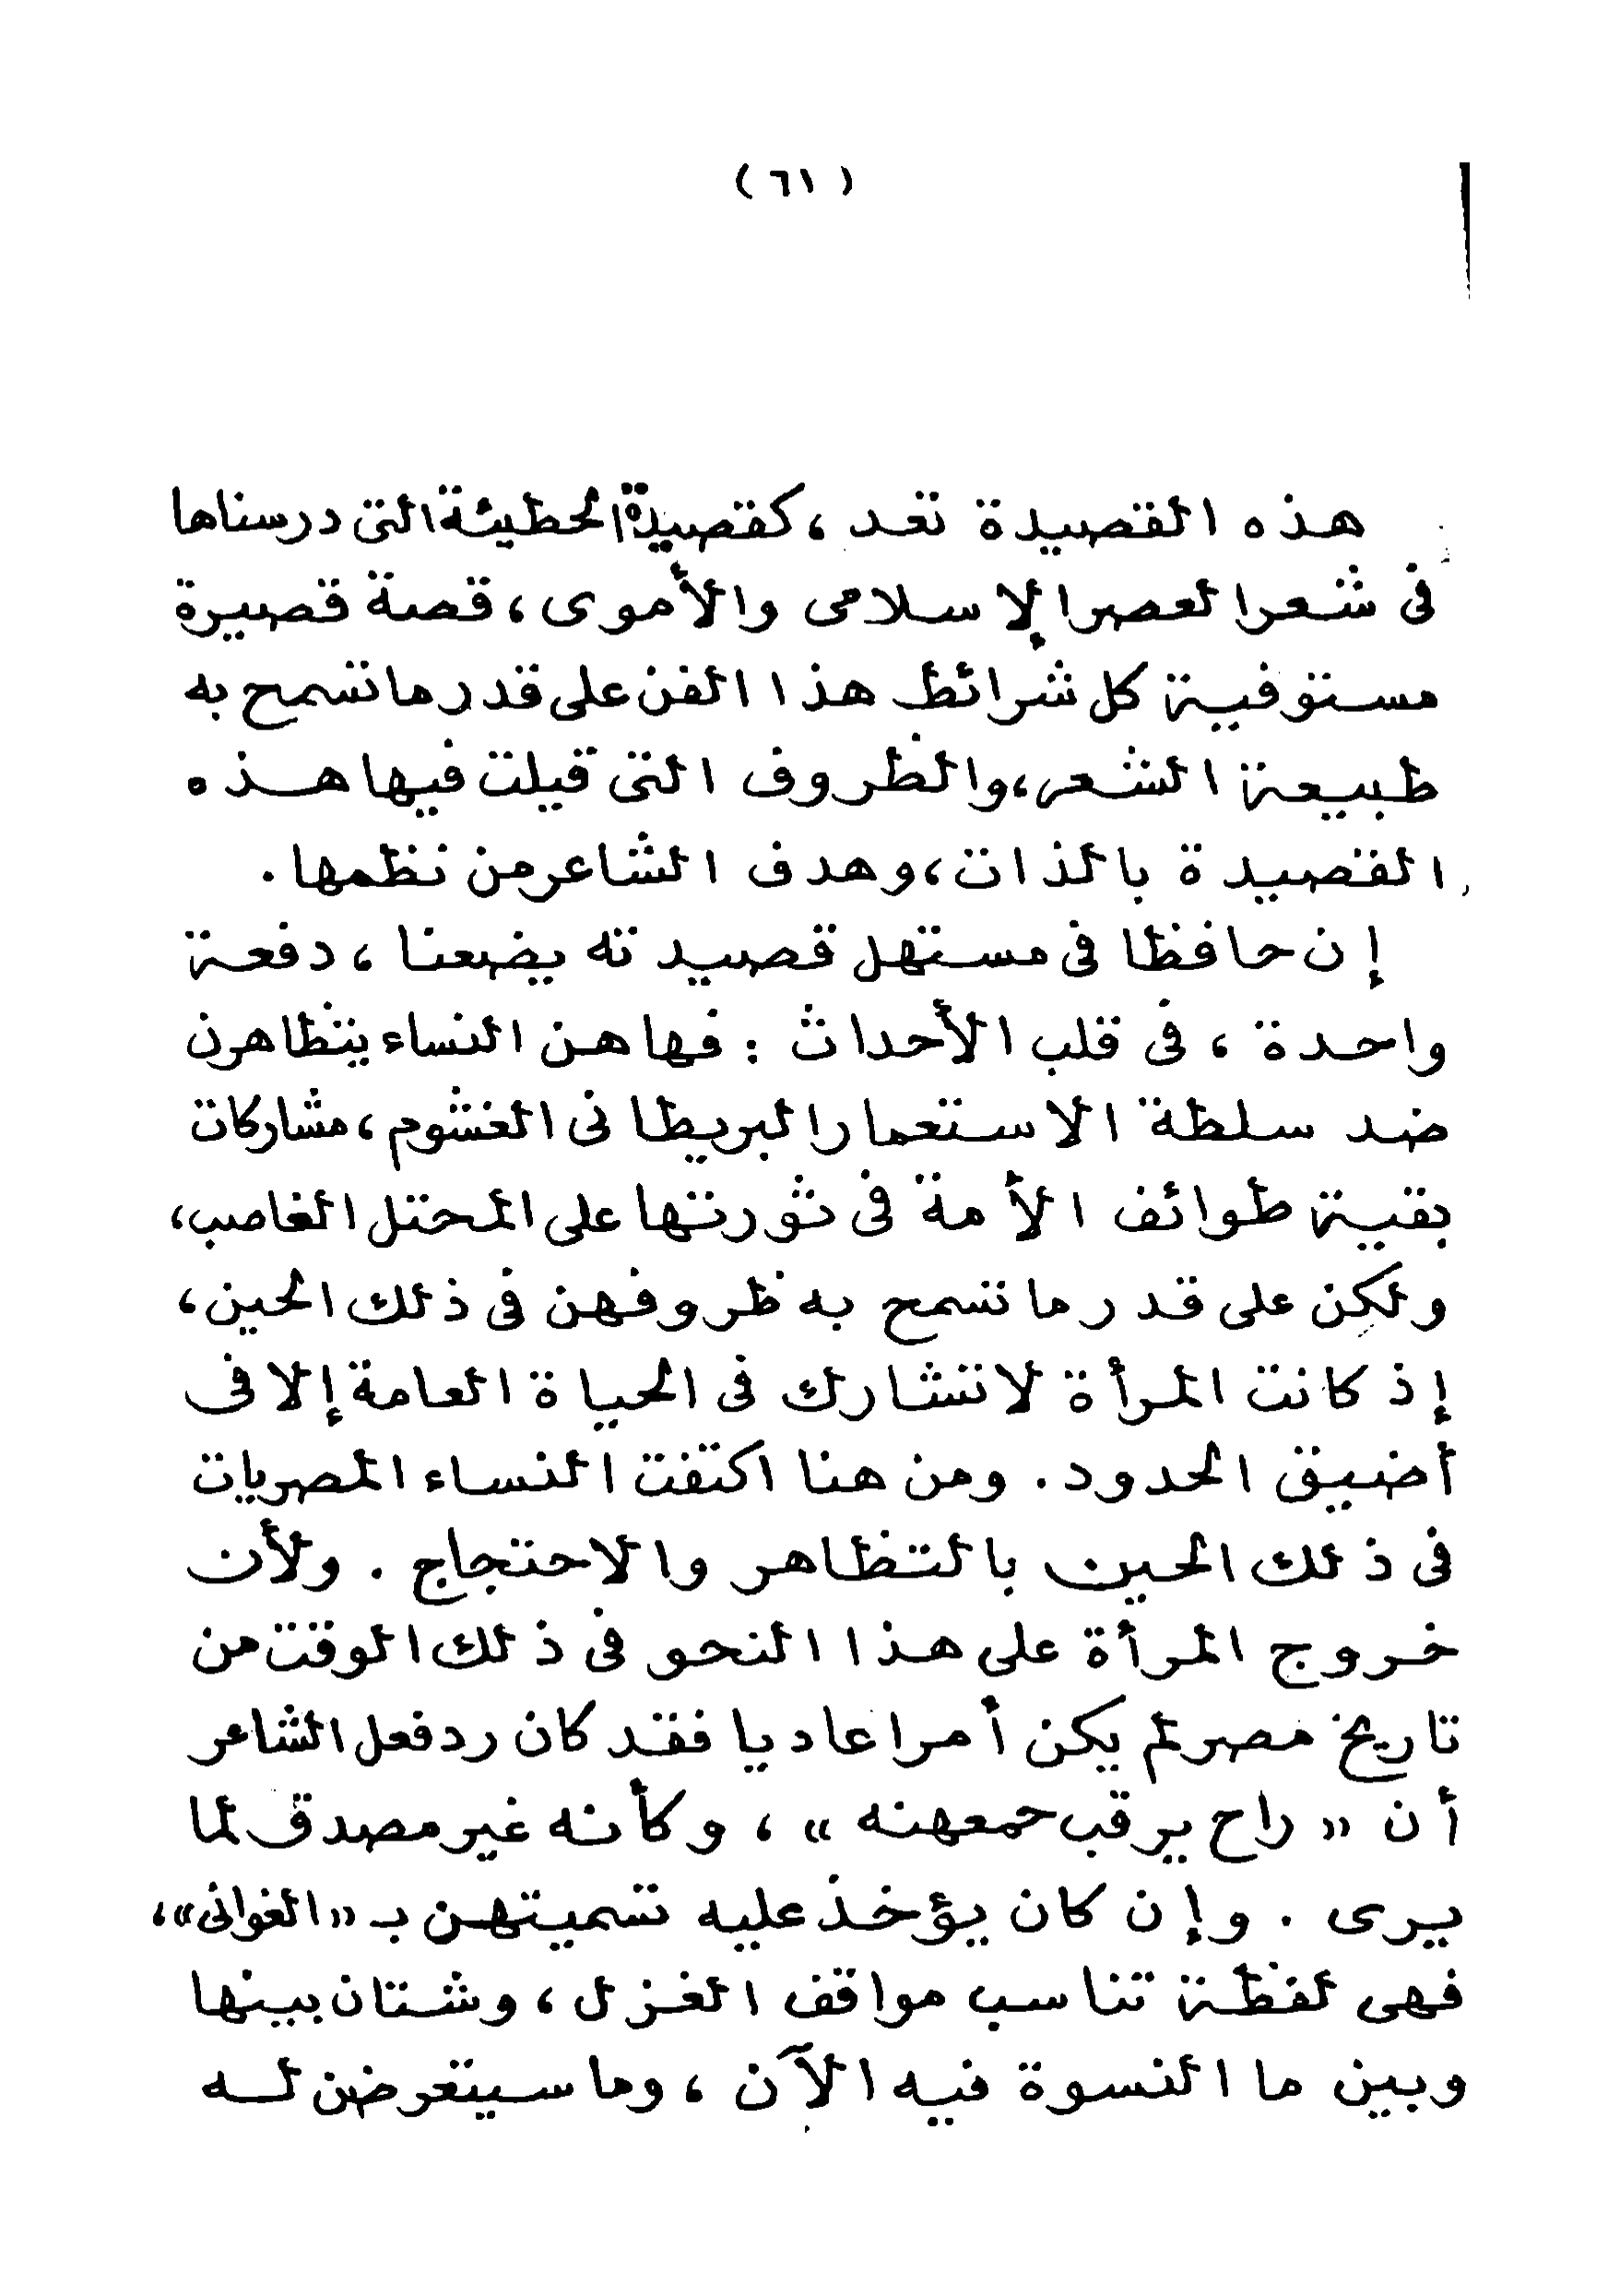 ( ٦١ )
هذه القصيدة تعد ، كقصيدة الحطيئة التى درسناها
فى شعر العصر الإسلامى والأموى ، قصة قصيرة
مستوفية كل شرائط هذا الفن على قدر ما تسمح به
طبيعة الشعر ، والظروف التى قيلت فيها هذه
القصيدة بالذات ، وهدف الشاعر من نظمها .
إن حافظا فى مستهل قصيدته يضعنا ، دفعة
واحدة ، فى قلب الأحداث : فها هن النساء يتظاهرن
ضد سلطة الاستعمار البريطانى الغشوم ، مشاركات
بقية طوائف الأمة فى ثورتها على المحتل الغاصب ،
ولكن على قدر ما تسمح به ظروفهن فى ذلك الحين ،
إذ كانت المرأة لا تشارك فى الحياة العامة إلا فى
أضيق الحدود . ومن هنا اكتفت النساء المصريات
فى ذلك الحين بالتظاهر والاحتجاج . ولأن
خروج المرأة على هذا النحو فى ذلك الوقت من
تاريخ مصر لم يكن أمرا عاديا فقد كان رد فعل الشاعر
أن « راح يرقب جمعهنه » ، وكأنه غير مصدق لما
يرى . وإن كان يؤخذ عليه تسميتهن بـ « الغوانى » ،
فهى لفظة تناسب مواقف الغزل ، وشتان بينها
وبين ما النسوة فيه الآن ، وما سيتعرضن له